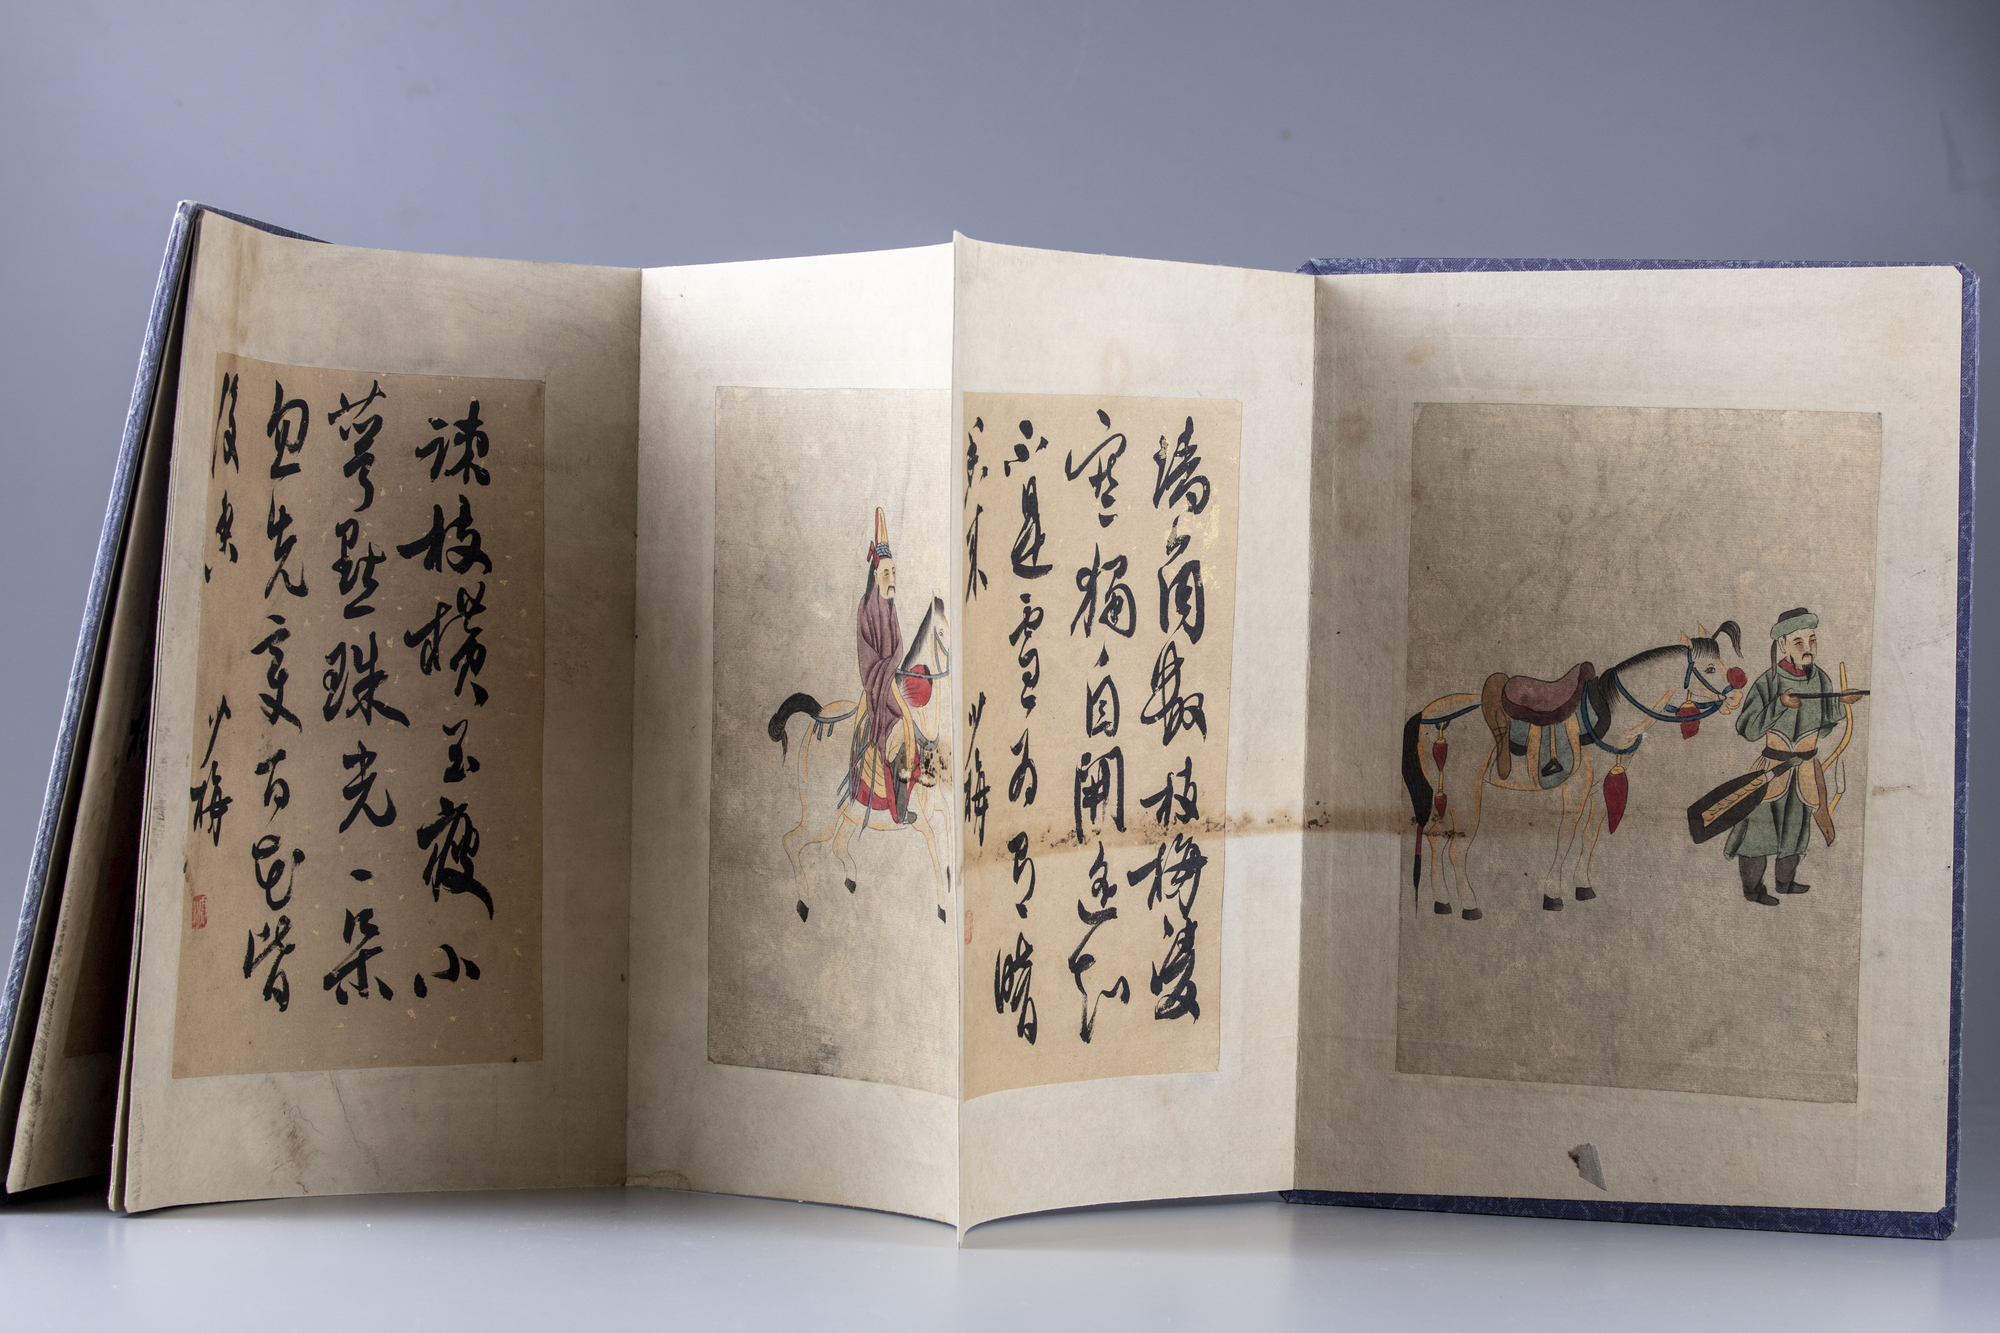 墻角數枝梅凌
寒獨自開遥知
不是雪為有暗
香来
少梅
疎枝橫玉瘦小
萼點珠光一朵
忽先變百花皆
後香
少梅